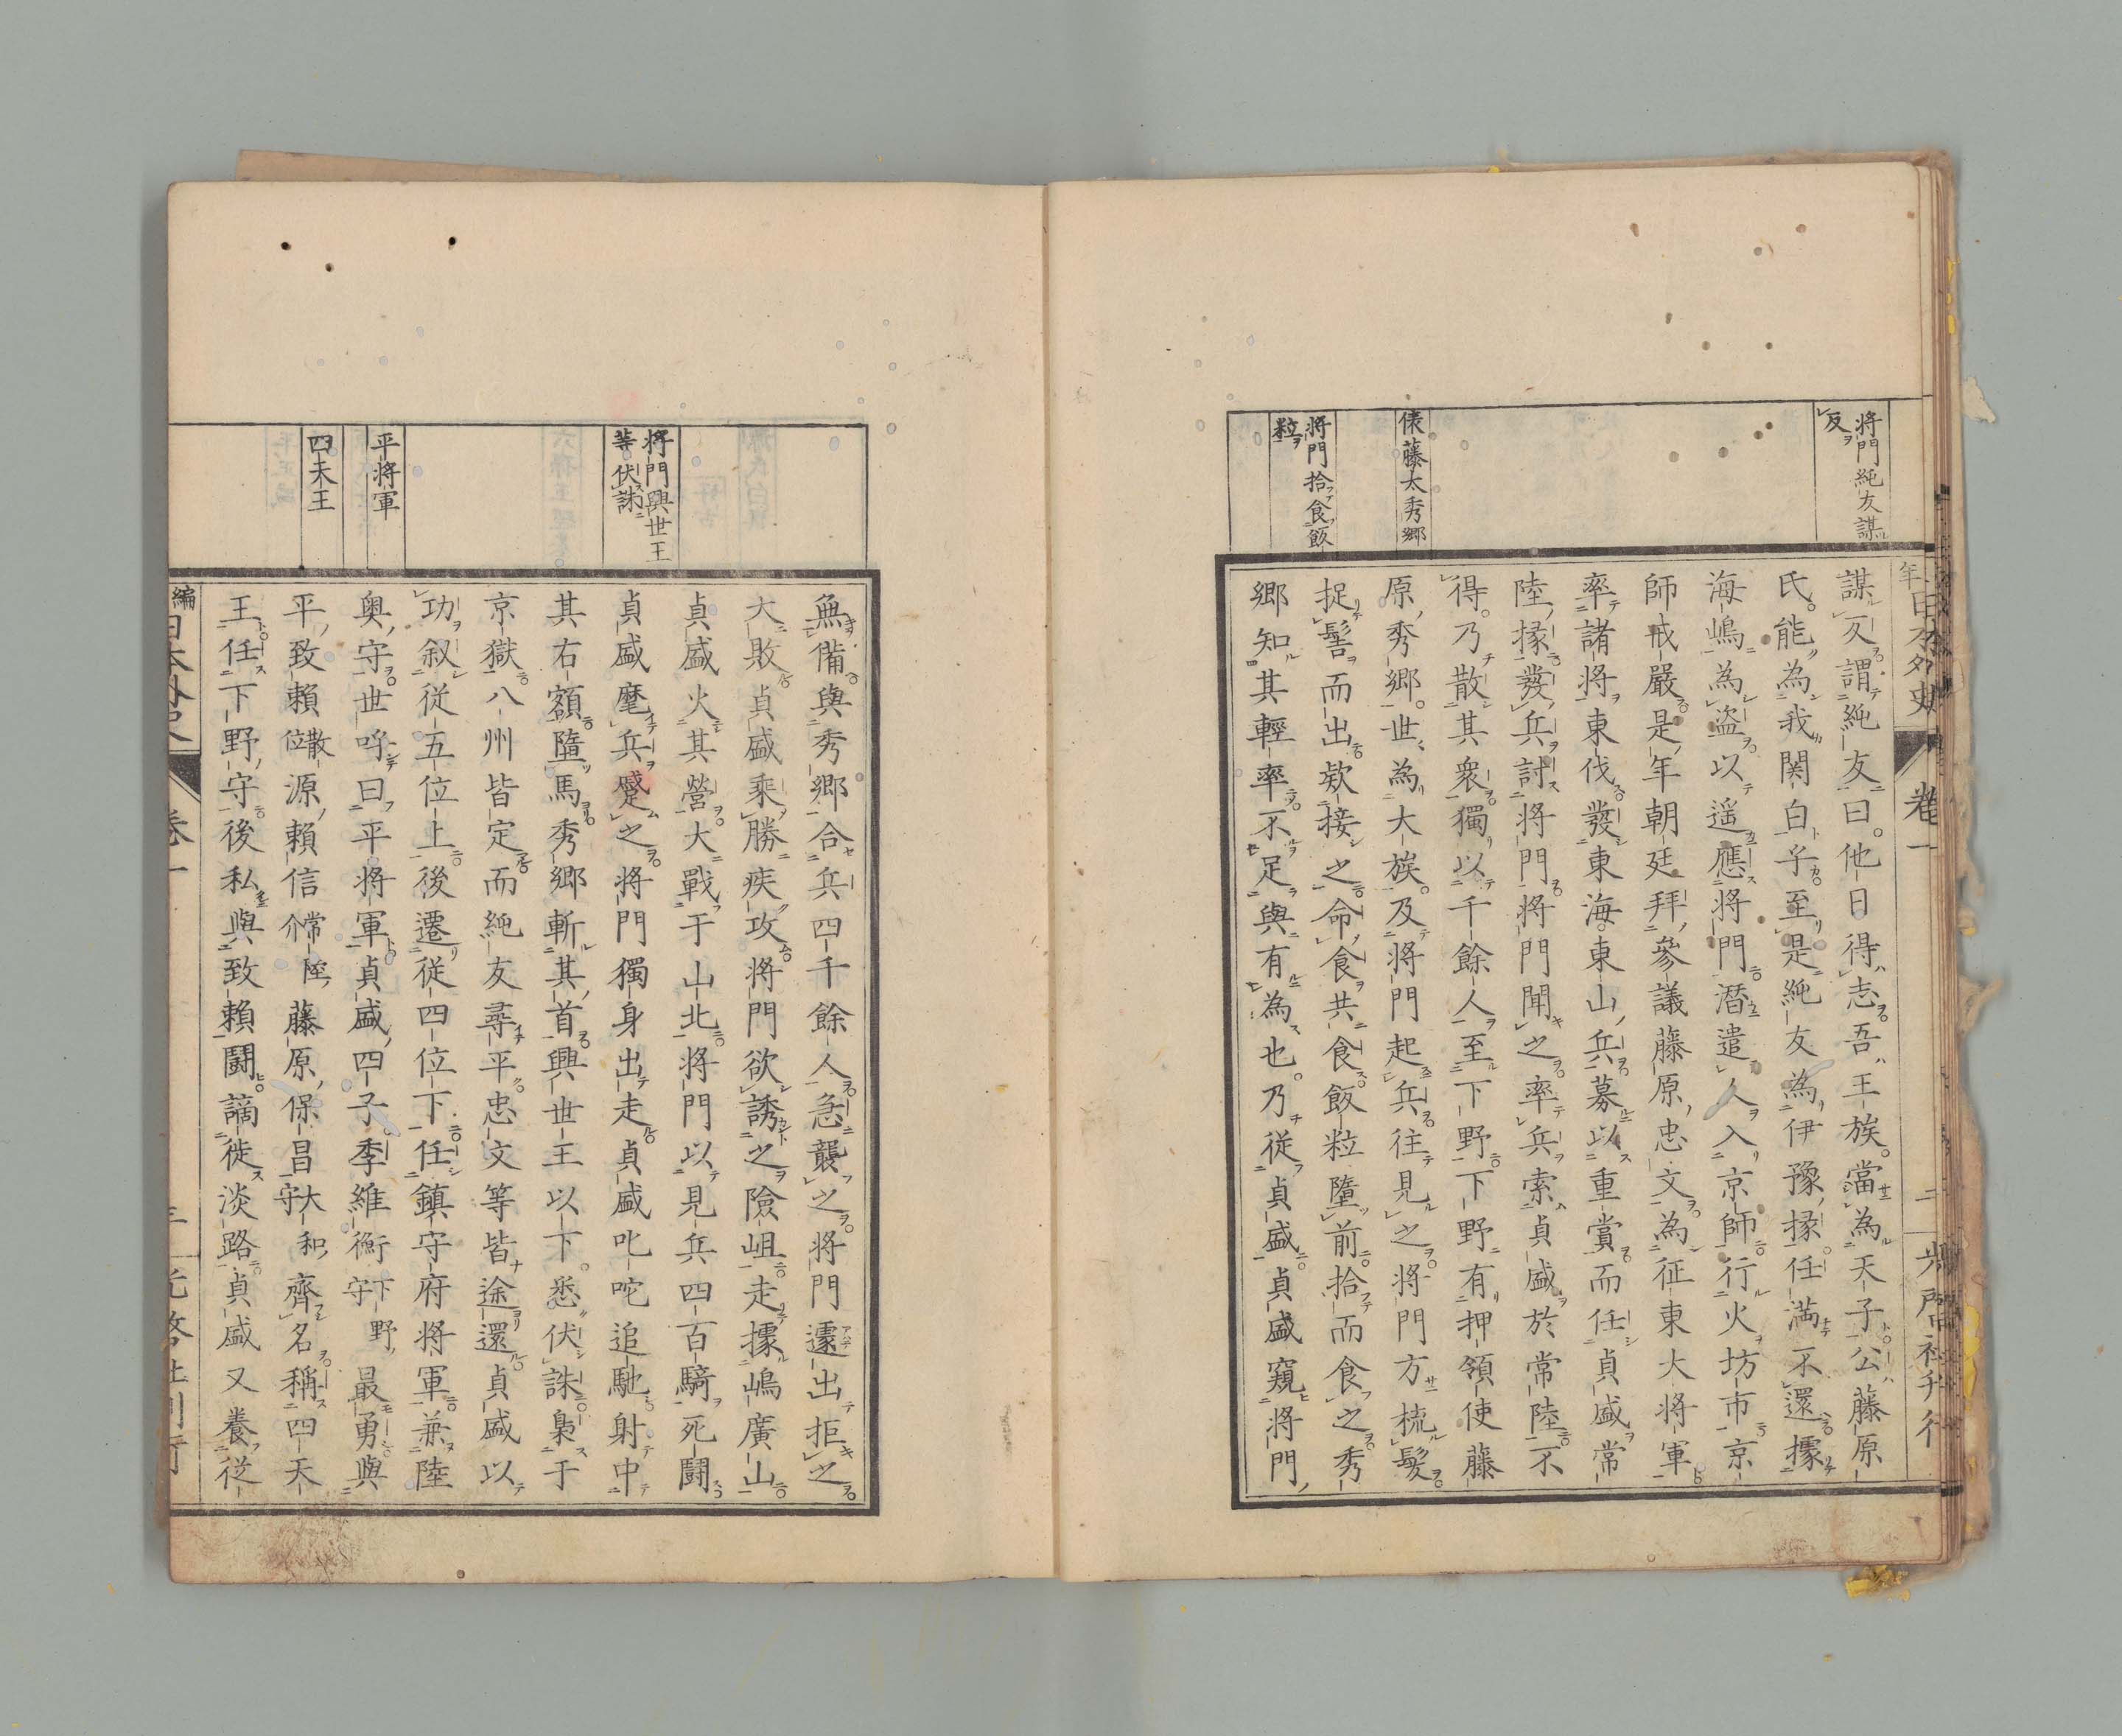 将門純友謀
反
俵藤太秀郷
将門拾食飯
粒
謀反謂純友曰他日得志吾王族當為天子公藤原
氏能為我関白乎至是純友為伊豫掾任満不還據
海嶋為盗以遥應将門潜遣人入京師行火坊市京
師戒嚴是年朝廷拜參議藤原忠文為征東大将軍
率諸将東伐發東海東山兵募以重賞而任貞盛常
陸掾發兵討将門将門聞之率兵索貞盛於常陸不
得乃散其衆獨以千餘人至下野下野有押領使藤
原秀郷世為大族及将門起兵往見之将門方梳髮
捉髻而出欵接之命食共食飯粒墮前拾而食之秀
郷知其輕率不足與有為也乃從貞盛貞盛窺将門
卷一
二
将門興世王
等伏誅
平将軍
四天王
無備與秀郷合兵四千餘人急襲之将門遽出拒之
大敗貞盛乘勝疾攻将門欲誘之險岨走據嶋廣山
貞盛火其營大戰于山北将門以見兵四百騎死闘
貞盛麾兵蹙之将門獨身出走貞盛叱咤追馳射中
其右額墮馬秀郷斬其首興世王以下悉伏誅梟于
京獄八州皆定而純友尋平忠文等皆途還貞盛以
功叙従五位上後遷従四位下任鎮守府将軍兼陸
奥守世呼曰平将軍貞盛四子季維衡下野守最勇與
平致頼散位源頼信常陸介藤原保昌大和守齊名稱四天
王任下野守後私與致頼闘謫徙淡路貞盛又養従